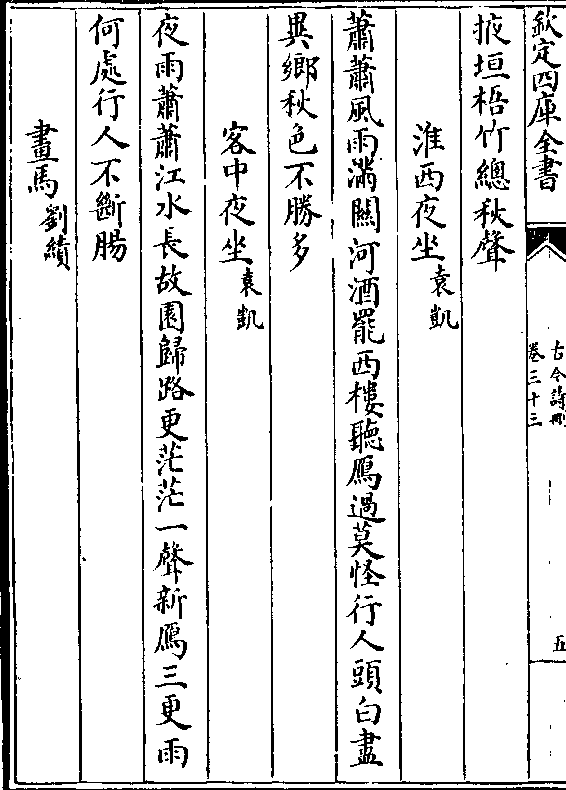 欽定四庫全書
古今詩刪
卷三十三
五
掖垣梧竹總秋聲
淮西夜坐 袁凱
蕭蕭風雨滿關河酒罷西樓聽鴈過莫怪行人頭白盡
異鄉秋色不勝多
客中夜坐 袁凱
夜雨蕭蕭江水長故園歸路更茫茫一聲新鴈三更雨
何處行人不斷腸
畫馬 劉績